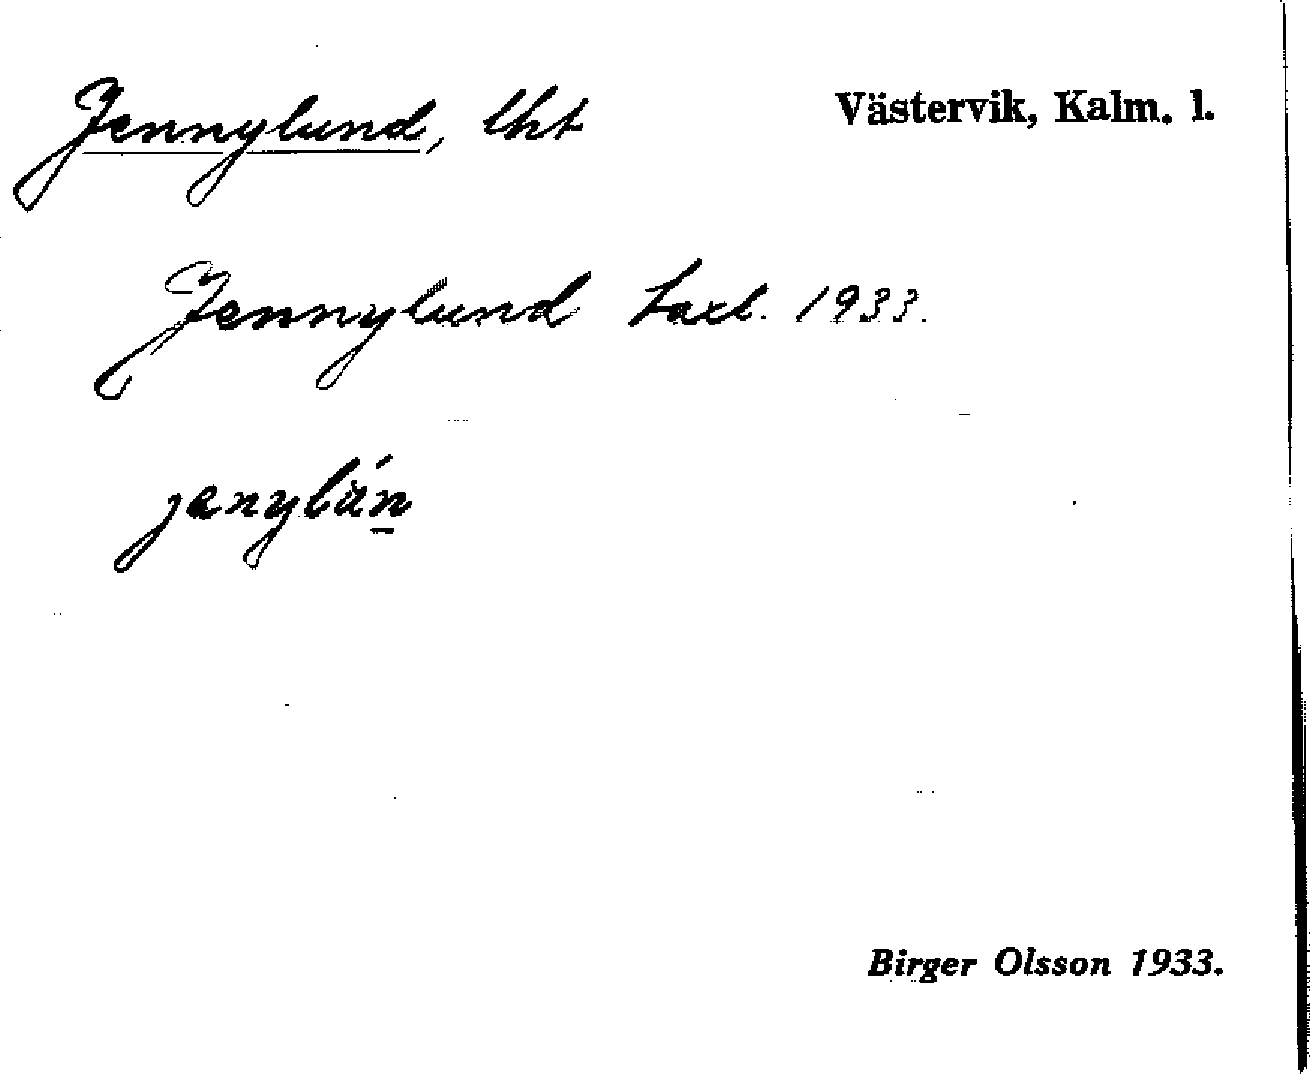 Jennylund, lht
Västervik, Kalm. l.
Jennylund taxl. 1933.
Birger Olsson 1933.